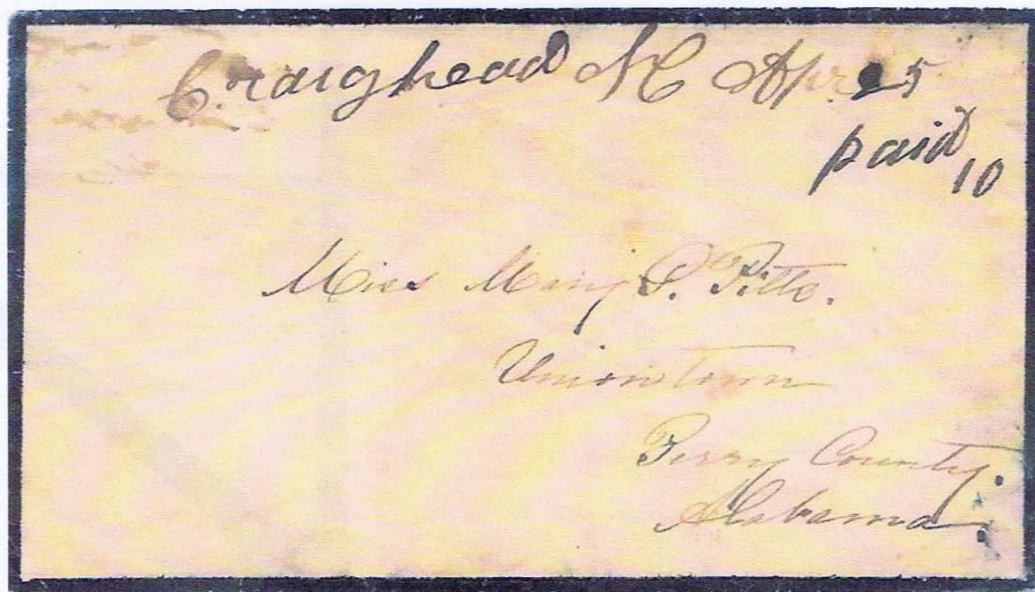 Craighead NC Apr 25
paid
10
Miss Mary P. Pitts.
Uniontown
Perry County.
Alabama.